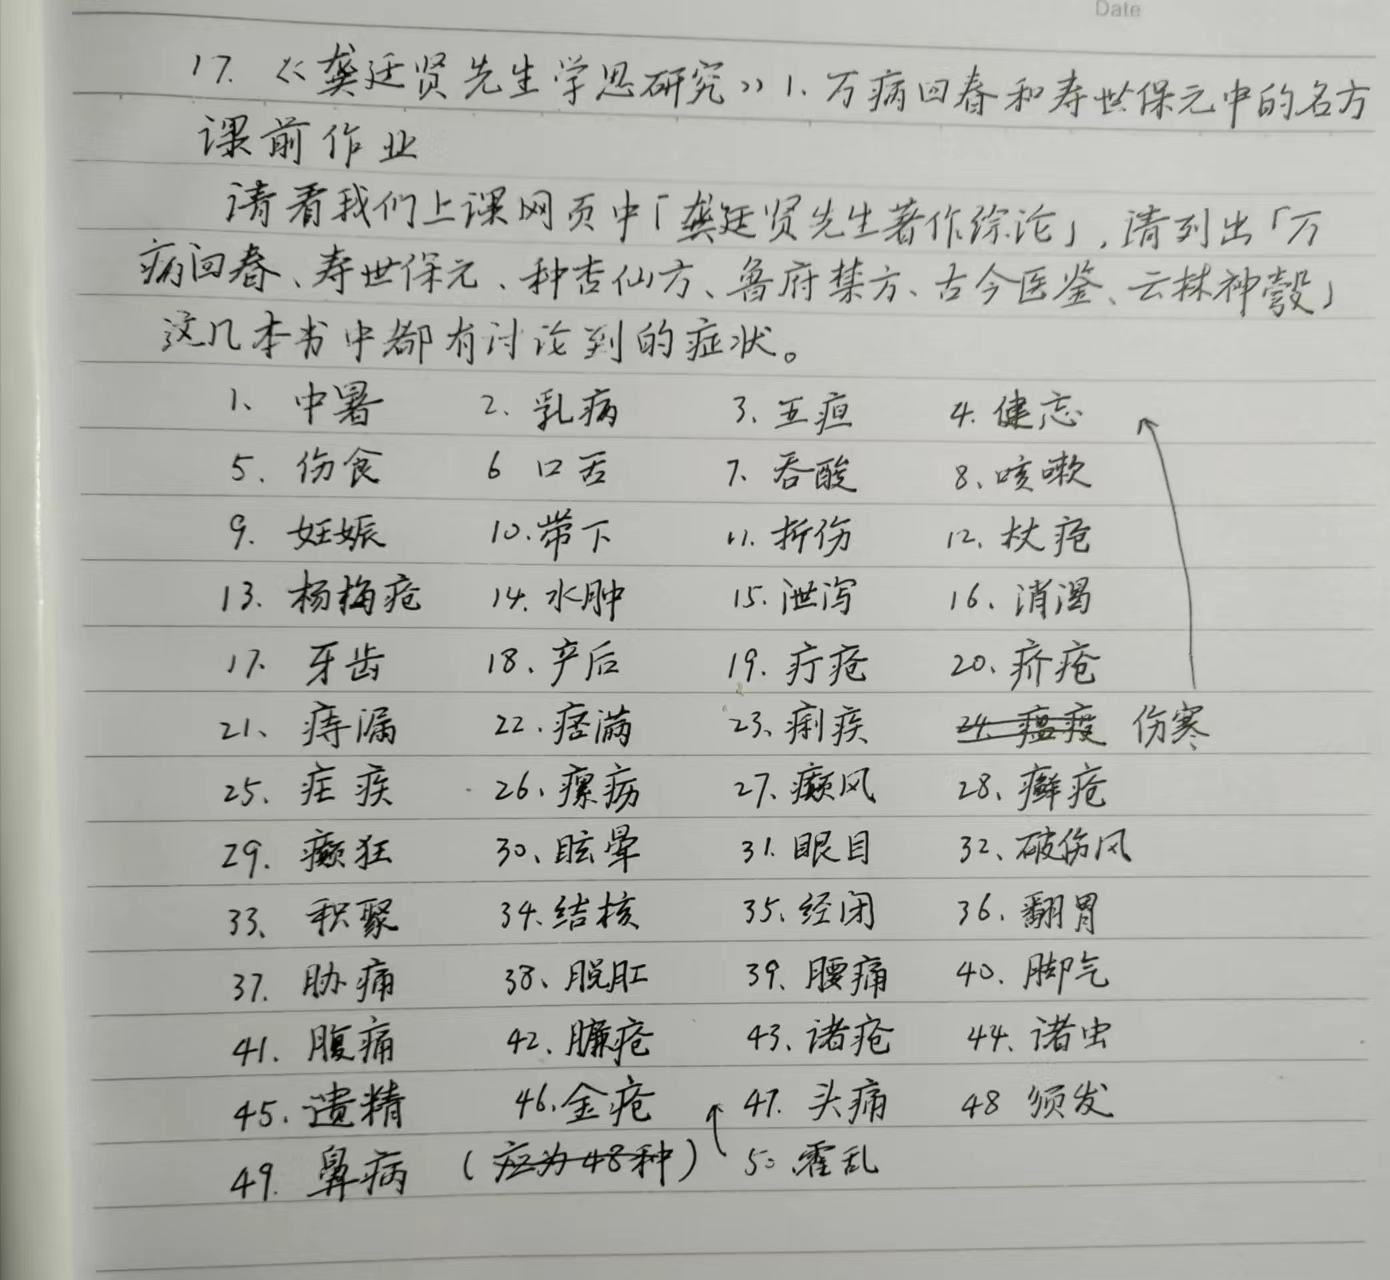 Date
17. 《龚廷贤先生学思研究》1. 万病回春和寿世保元中的名方
课前作业
请看我们上课网页中「龚廷贤先生著作综论」, 请列出「万
病回春、寿世保元、种杏仙方、鲁府禁方、古今医鉴、云林神彀」
这几本书中都有讨论到的症状。
1、中暑 2. 乳病 3. 五疸 4. 健忘
5. 伤食 6 口舌 7. 吞酸 8、咳嗽
9. 妊娠 10. 带下 11. 折伤 12. 杖疮
13. 杨梅疮 14. 水肿 15. 泄泻 16. 消渴
17. 牙齿 18. 产后 19. 疔疮 20. 疥疮
21、痔漏 22. 痞满 23、痢疾 24. 瘟疫 伤寒
25、疟疾 26、瘰疬 27. 癜风 28、癣疮
29. 癫狂 30、眩晕 31. 眼目 32、破伤风
33、积聚 34. 结核 35、经闭 36. 翻胃
37. 胁痛 38、脱肛 39、腰痛 40、脚气
41. 腹痛 42、臁疮 43、诸疮 44、诸虫
45. 遗精 46. 金疮 47. 头痛 48 须发
49. 鼻病 (应为48种) 50 霍乱